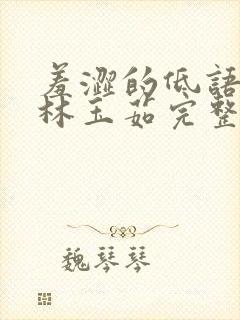 羞澀的低語
林玉茹完整
魏琴琴